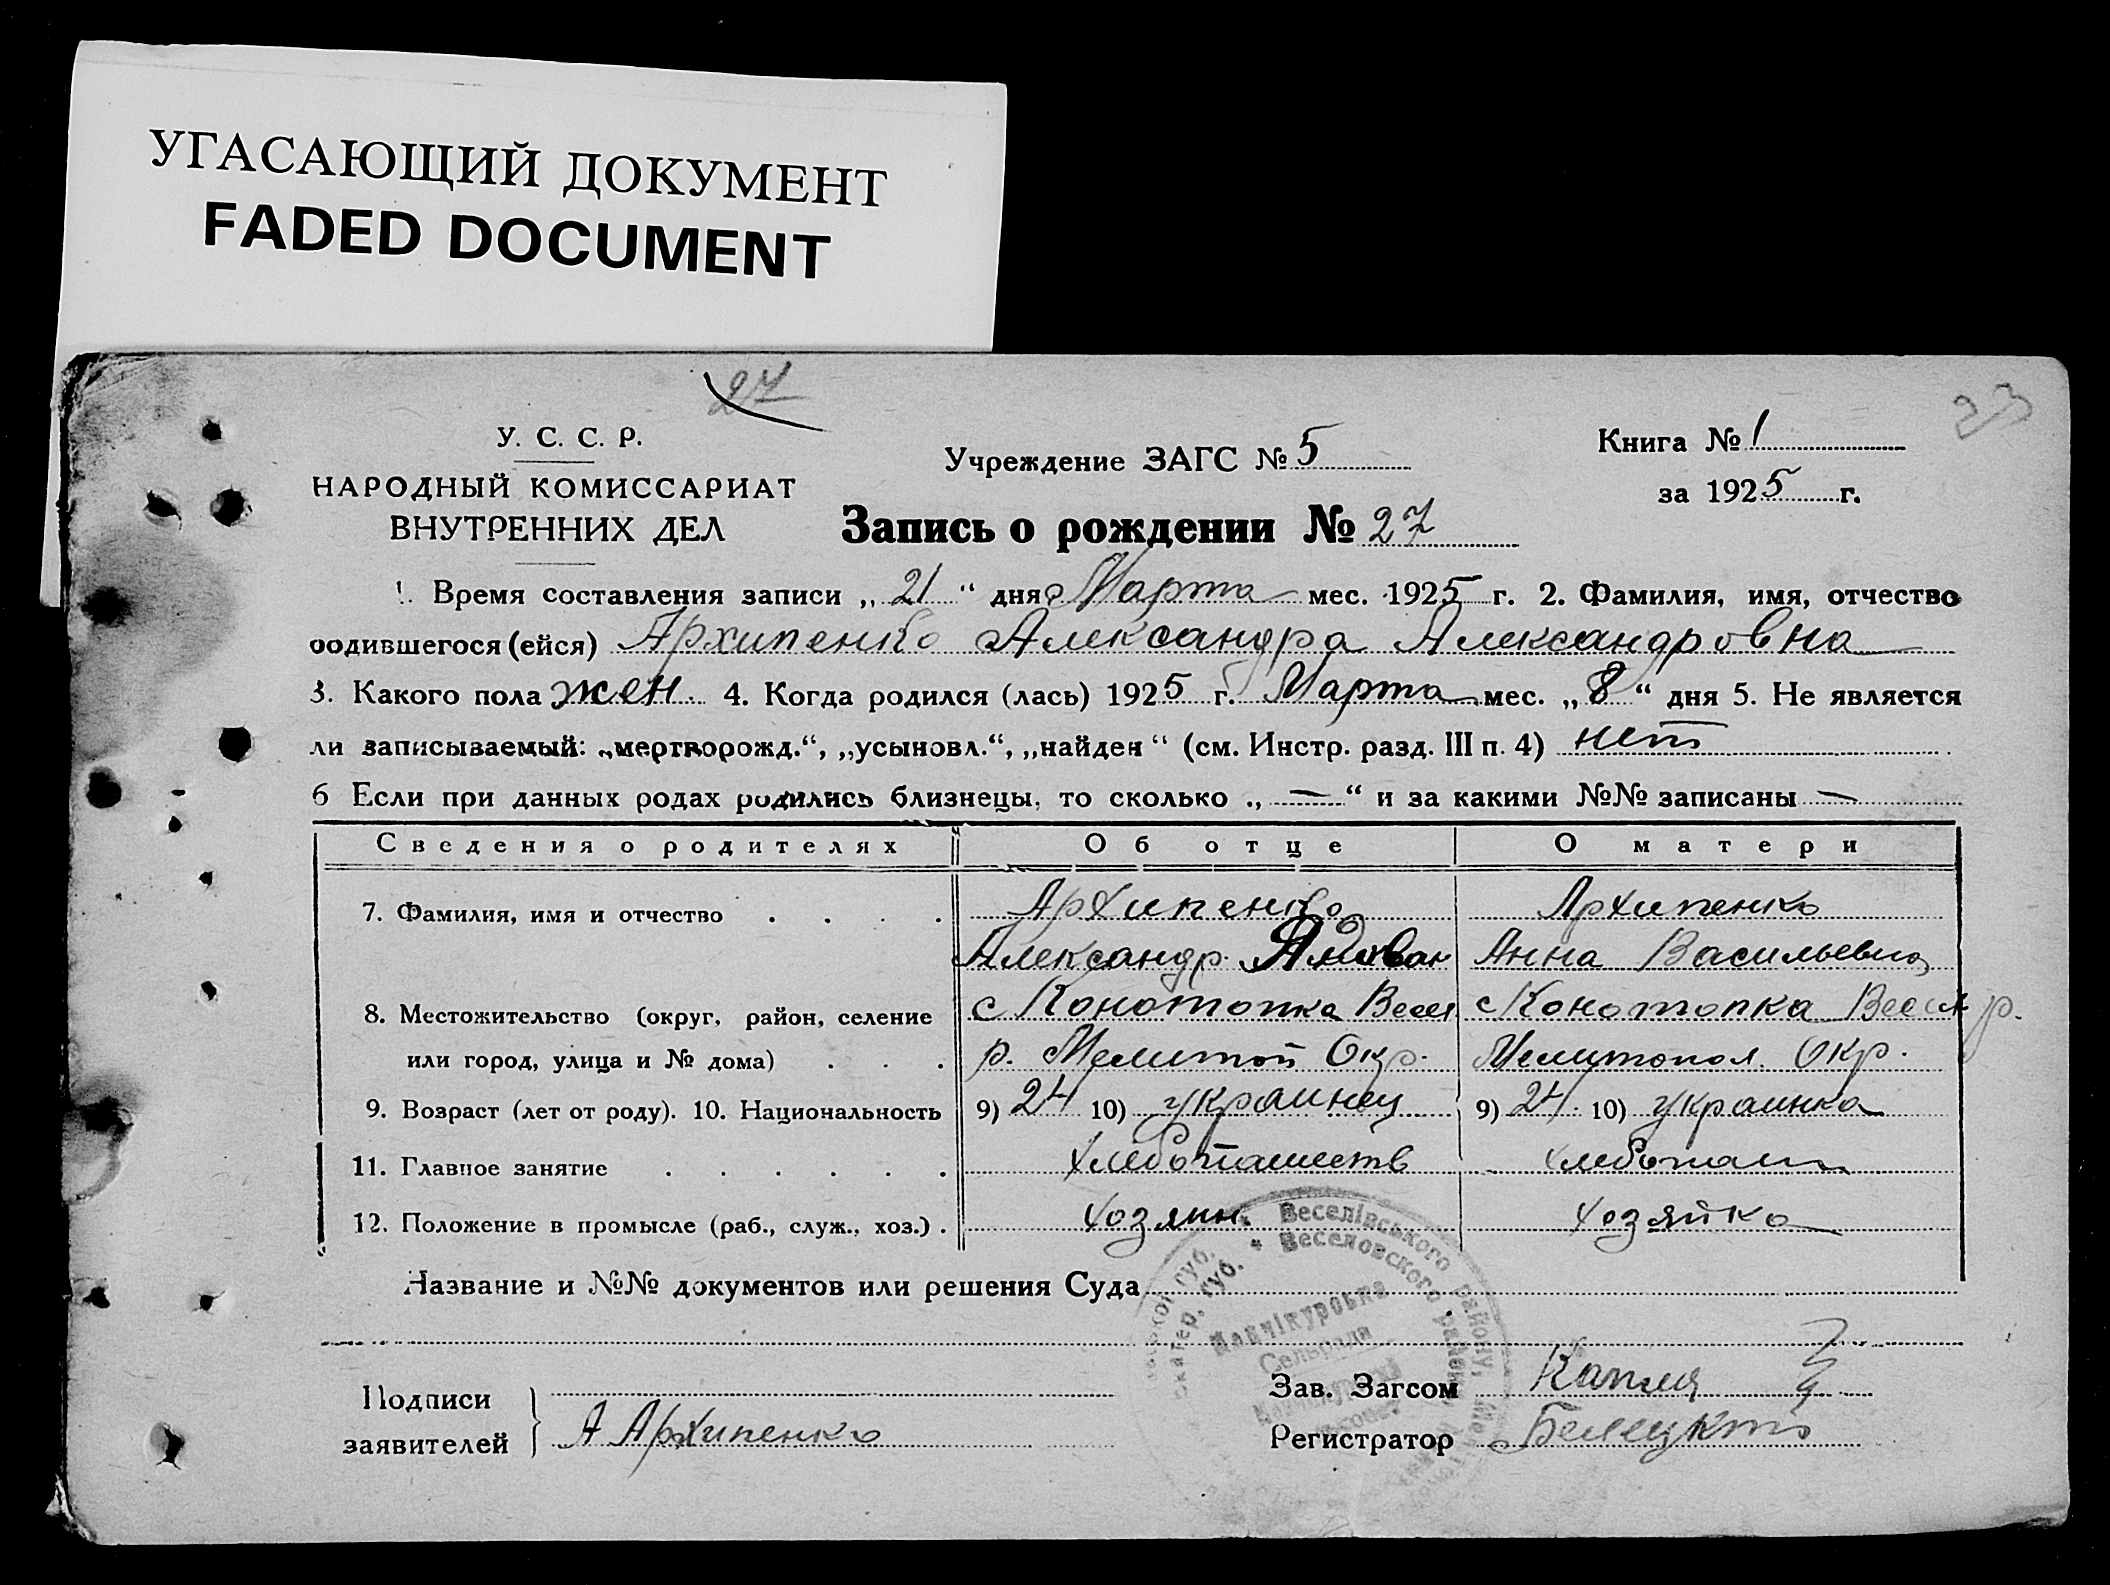 УГАСАЮЩИЙ ДОКУМЕНТ
FADED DOCUMENT
27
23
У. С. С. Р.
НАРОДНЫЙ КОМИССАРИАТ
ВНУТРЕННИХ ДЕЛ
Учреждение ЗАГС № 5
Книга № 1
за 1925 г.
Запись о рождении № 27
1. Время составления записи „21“ дня Марта мес. 1925 г. 2. Фамилия, имя, отчество
родившегося (ейся) Архипенко Александра Александровна
3. Какого пола жен. 4. Когда родился (лась) 1925 г. Марта мес. „8“ дня 5. Не является
ли записываемый: „мертворожд.“, „усыновл.“, „найден“ (см. Инстр. разд. III п. 4) нет
6 Если при данных родах родились близнецы, то сколько „—“ и за какими №№ записаны —
Сведения о родителях Об отце О матери
7. Фамилия, имя и отчество Архипенко Архипенко
Александр Анна Васильевна
8. Местожительство (округ, район, селение с Конотопка Весел с Конотопка Весел р.
или город, улица и № дома) р. Мелитоп Окр. Мелитопол. Окр.
9. Возраст (лет от роду). 10. Национальность 9) 24 10) украинец 9) 24. 10) украинка
11. Главное занятие хлебопашеств хлебопаш
12. Положение в промысле (раб., служ., хоз.) хозяин. хозяйка
Название и №№ документов или решения Суда
Веселівського району
Веселовского района
катер. губ.
Сельрада
Подписи
заявителей А Архипенко
Зав. Загсом Капля
Регистратор Белецкий